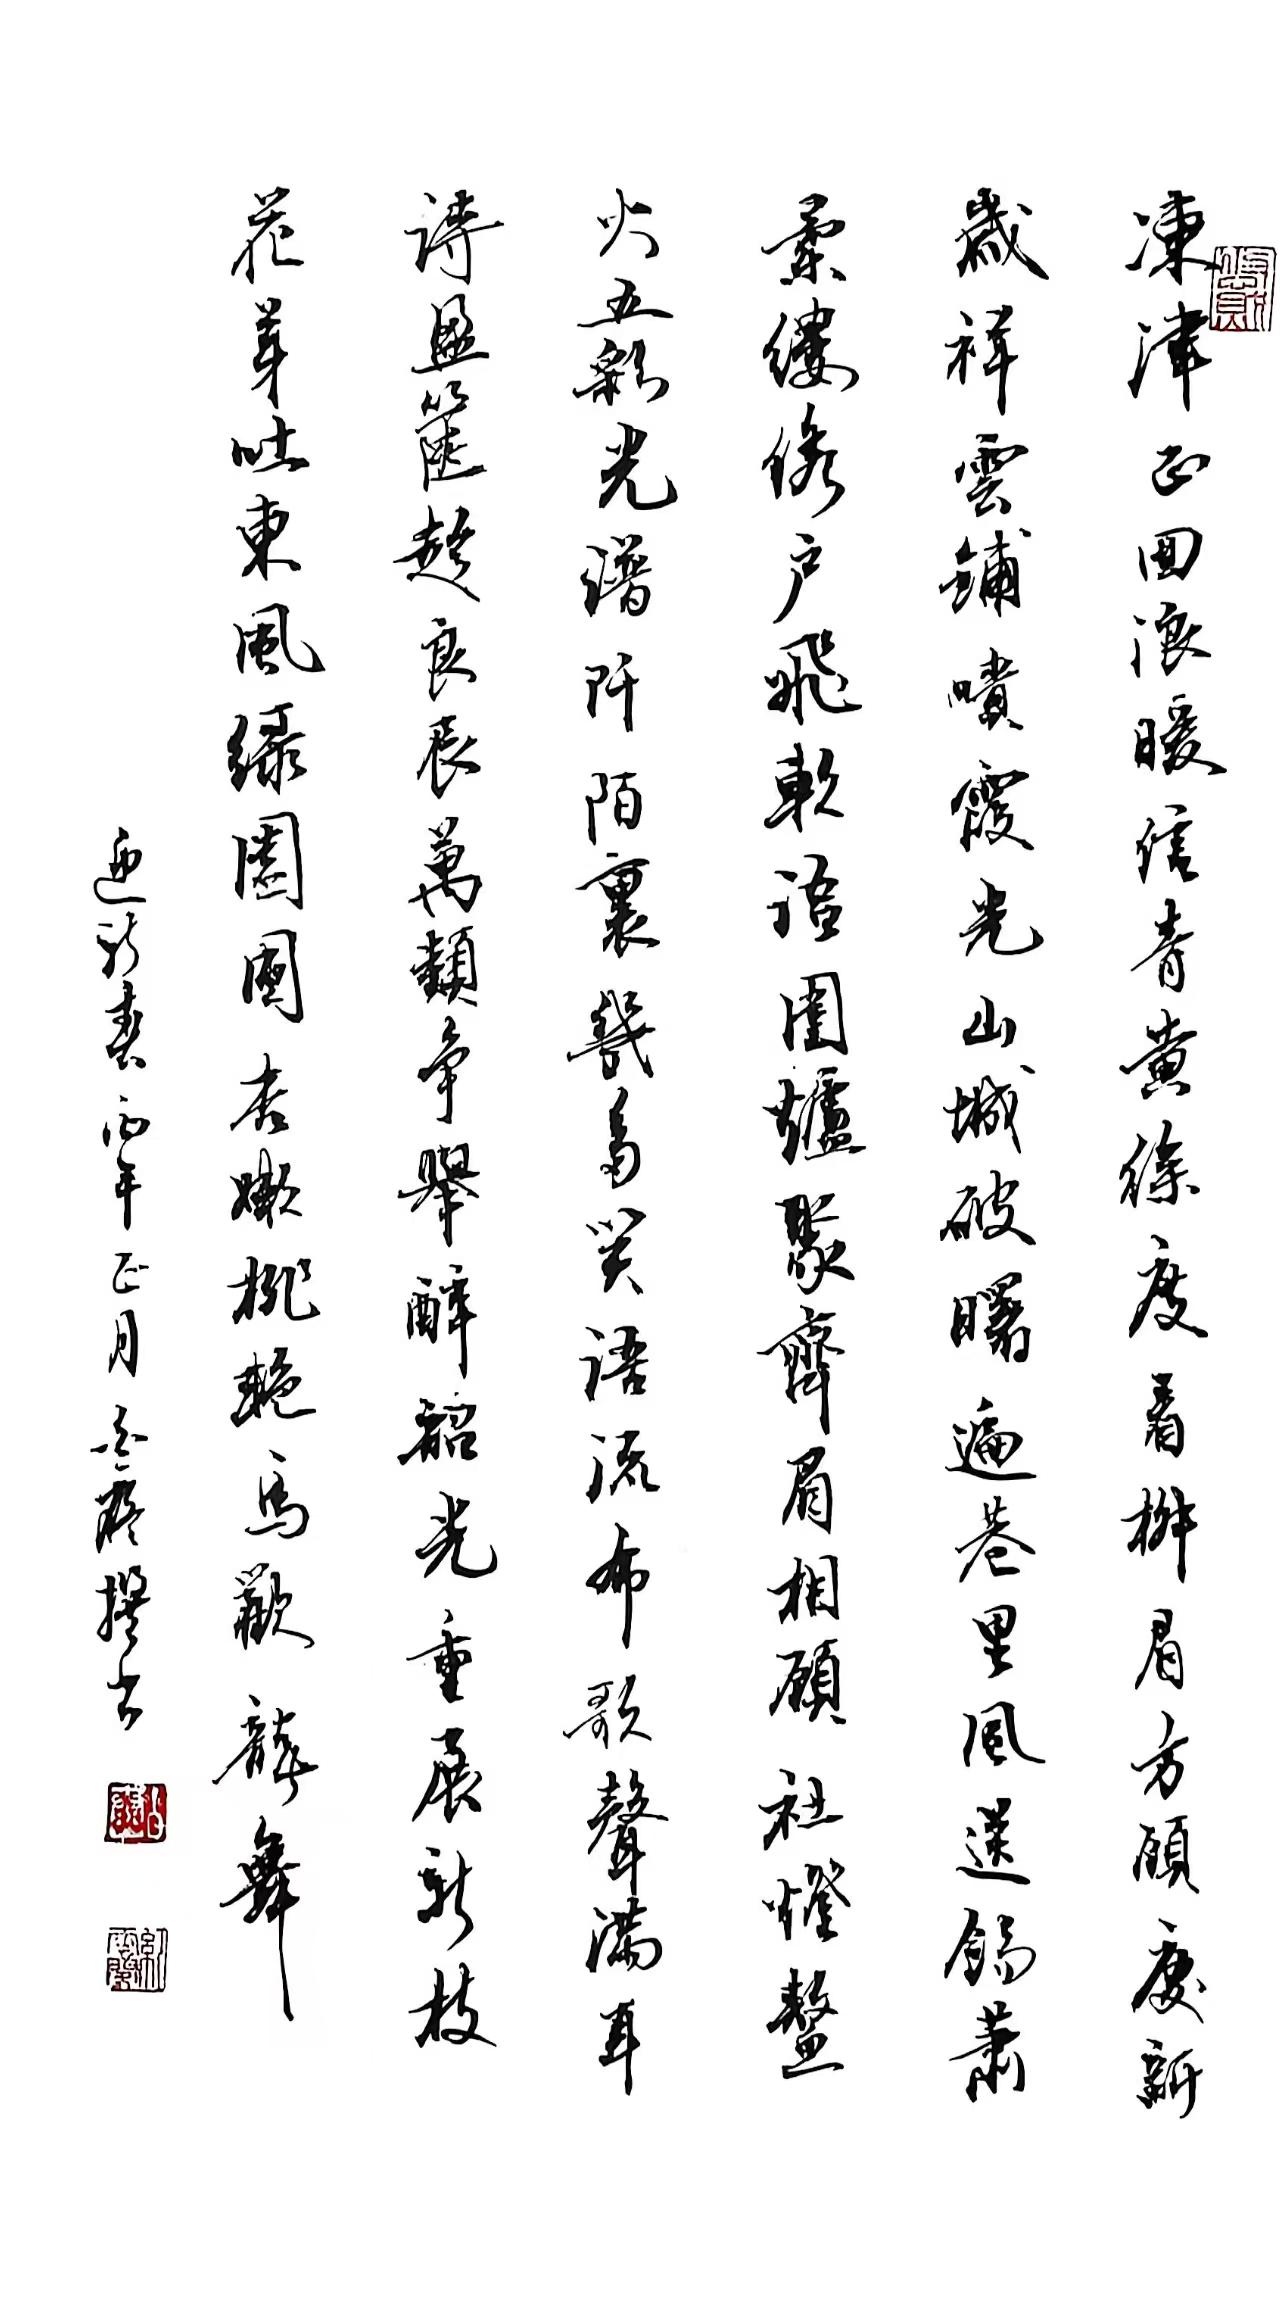 凍津正回浪暖信青黄徐度看柳眉方頤慶新
歲祥雲鋪噴霞光山城破曙遍巷里風送錫蕭
縈縷僝户飛軟語圍爐聚齊眉相顧社燈鰲
火五彩光譜阡陌裏幾多笑語流布歌聲滿耳
詩盈篋趁良辰萬類争舉醉韶光重展新枝
花芽吐東風緑園圃杏嫩桃艷馬歡龍舞
迎新春丙年正月 撰書